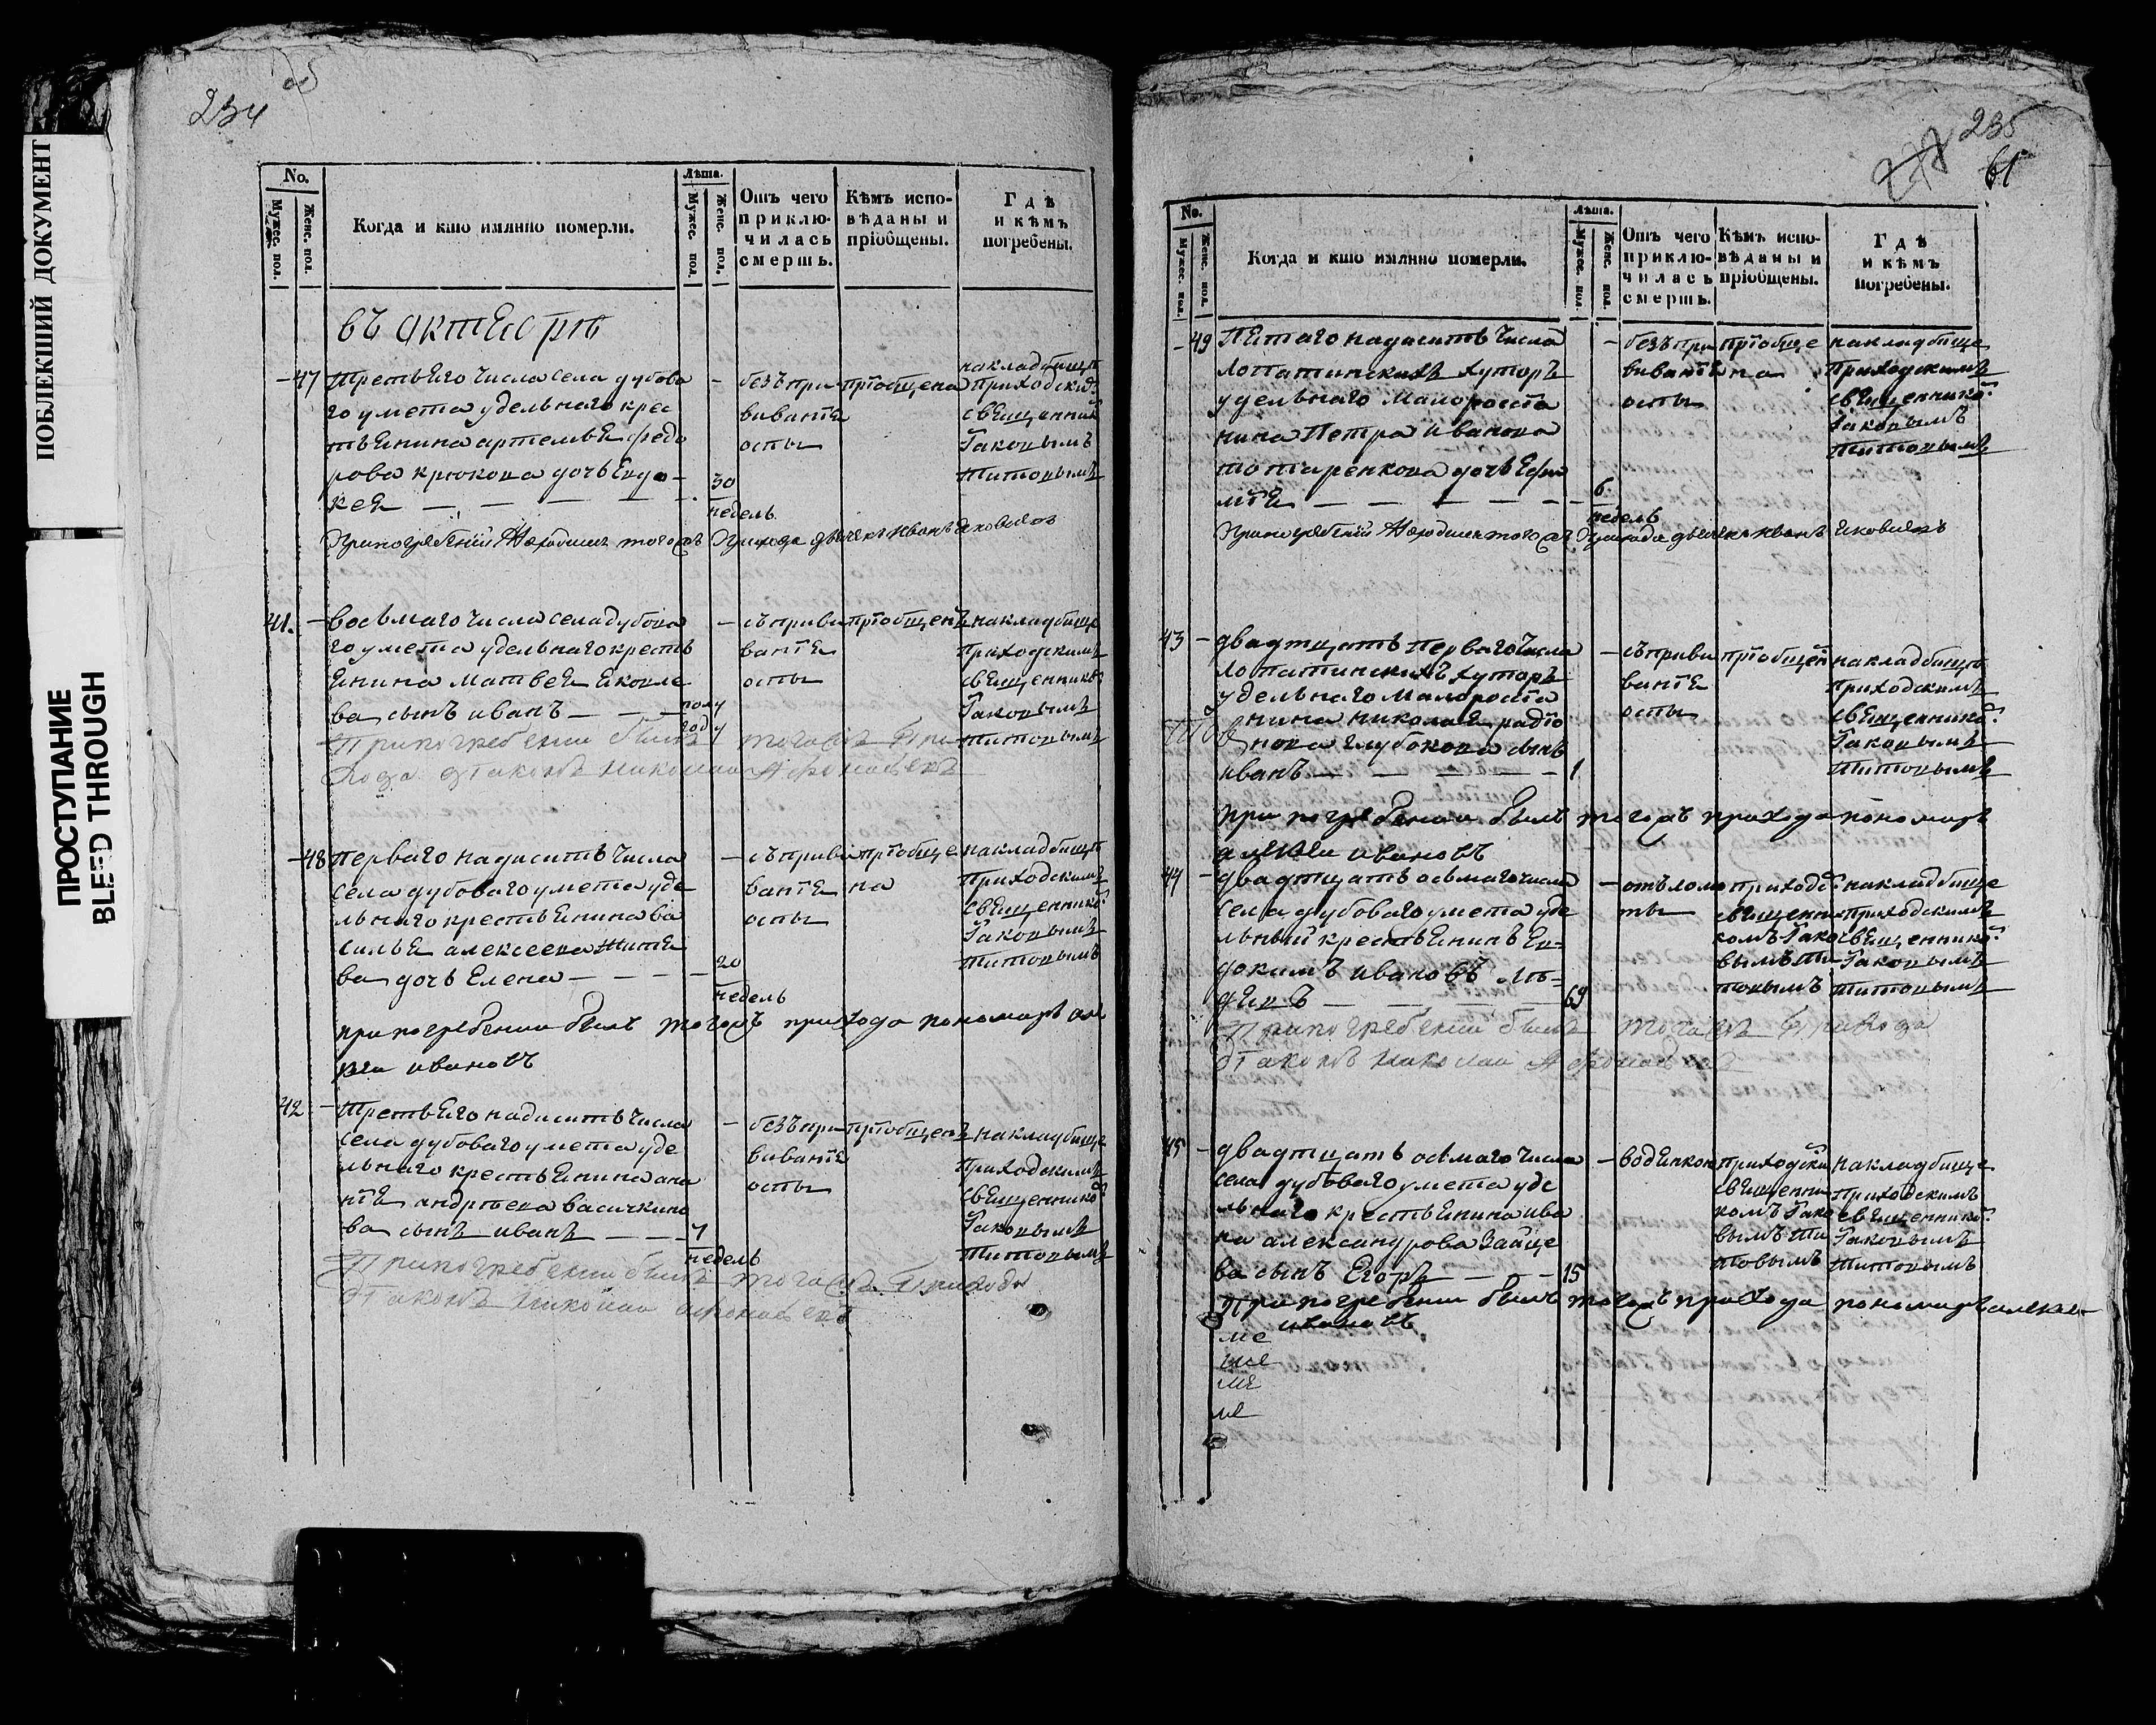 ПОБЛЕКШИЙ ДОКУМЕНТ
ПРОСТУПАНИЕ
BLEED THROUGH
234
No.
Мужес. пол.
Женс. пол.
Когда и кто имянно померли.
Лѣта.
Мужес. пол.
Женс. пол.
Отъ чего приключилась смерть.
Кѣмъ исповѣданы и пріобщены.
Гдѣ и кѣмъ погребены.
въ октебрѣ
47 третьего числа села дубова
го умета удельнаго крес
тьенина артемье федо
рова крюкова дочь Евдо-
кее
30
недель
безъ при
виванте
оспы
пріобщена
накладбище
приходским
свещенник
Таковымъ
Титовымъ
При погребении находился тогожъ Прихода дьячекъ Иванъ Яковлевъ
41. восьмаго числа села дубова
го умета удельнаго кресть
енина матвее ековле
ва сынъ иванъ
полу
году
съ приви
ванте
оспы
пріобщенъ
накладбище
приходскимъ
свещеннико
Таковымъ
Титовымъ
При погребении былъ тогожъ при
хода дтаконъ николаи Афонасьевъ
48 перваго надцсить числа
села дубоваго умета уде
льнаго крестьенина ва
силье алексеева
ва дочь Елена
20
недель
съ приви
ванте
оспы
пріобще
на
накладбище
приходскимъ
свещеннико
Таковымъ
Титовымъ
при погребении былъ тогожъ прихода пономарь але
кеи ивановъ
42 третьего надцсить числа
села дубоваго умета уде
льнаго крестьенина ана
нте андреева васичкино
ва сынъ иванъ
7
недель
безъ при
виванте
оспы
пріобщенъ
накладбище
приходскимъ
свещеннико
Таковымъ
Титовымъ
При погребении былъ тогожъ прихода
дтаконъ николаи афонасьевъ
235
61
No.
Мужес. пол.
Женс. пол.
Когда и кто имянно померли.
Лѣта.
Мужес. пол.
Женс. пол.
Отъ чего приключилась смерть.
Кѣмъ исповѣданы и пріобщены.
Гдѣ и кѣмъ погребены.
49 петаго надцсить числа
лопатинскихъ хуторъ
удельнаго малоросіа
нина Петра иванова
дочь Ефи
мте
6
недель
безъ при
виванте
оспы
пріобще
на
накладбище
приходскимъ
свещеннико
Таковымъ
Титовымъ
При погребении находился тогожъ Прихода дьячекъ Иванъ Яковлевъ
43 двадтцать перваго числа
лопатинскихъ хуторъ
удельнаго малоросіа
нина николае радіо
нова глубокова сынъ
иванъ
1
съ приви
ванте
оспы
пріобщен
накладбище
приходскимъ
свещеннико
Таковымъ
Титовымъ
при погребении былъ тогожъ прихода пономарь
алекеи ивановъ
44 двадтцать осьмаго числа
села дубоваго умета уде
льный крестьенинъ Ев=
докимъ ивановъ
69
отъ ломо
ты
приходс
свещенни
комъ Тако
вымъ Ти
товымъ
накладбище
приходскимъ
свещеннико
Таковымъ
Титовымъ
При погребении былъ тогожъ прихода
дтаконъ николаи Афонасьевъ
45 двадтцать осьмаго числа
села дубоваго умета уде
льнаго крестьенина ива
на александрова Зайце
ва сынъ Егоръ
15
приходски
свещенни
комъ Тако
вымъ Ти
товымъ
накладбище
приходскимъ
свещеннико
Таковымъ
Титовымъ
При погребении былъ тогожъ прихода пономарь алекеи
ивановъ